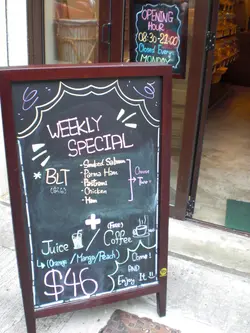 OPENING
HOUR
08:30-21:00
Closed Every
MONDAY
WEEKLY
SPECIAL
* BLT
- Smoked Salmon
- Parma Ham
- Pastrami
- Chicken
- Ham
+
Juice / (Free) Coffee
(Orange/Mango/Peach)
$46
Come!
AND
Enjoy It